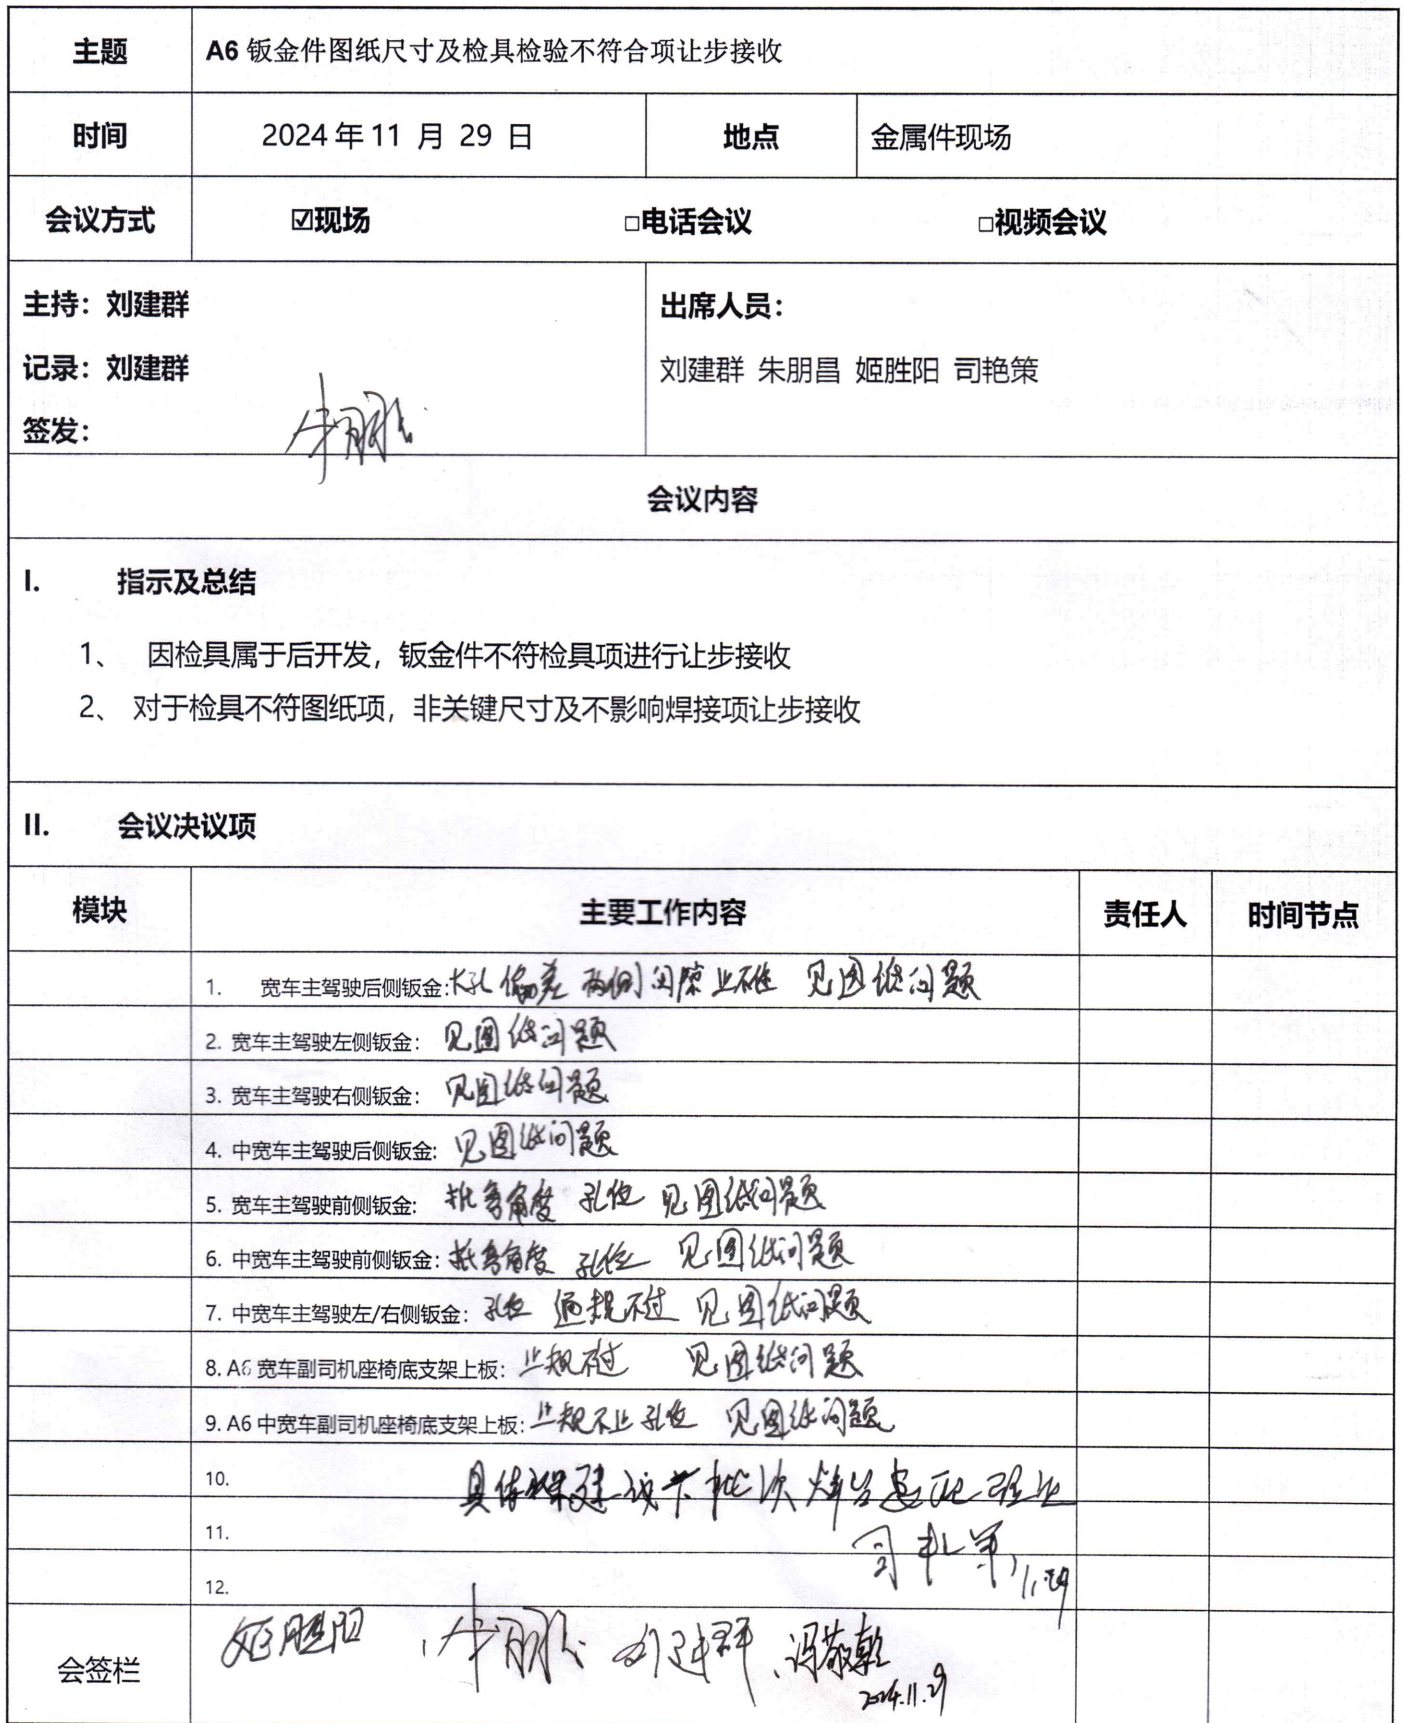 主题 A6 钣金件图纸尺寸及检具检验不符合项让步接收
时间 2024年11 月 29 日 地点 金属件现场
会议方式 ☑现场 □电话会议 □视频会议
主持：刘建群
记录：刘建群
签发：
出席人员：
刘建群 朱朋昌 姬胜阳 司艳策
会议内容
I. 指示及总结
1、 因检具属于后开发，钣金件不符检具项进行让步接收
2、 对于检具不符图纸项，非关键尺寸及不影响焊接项让步接收
II. 会议决议项
模块 主要工作内容 责任人 时间节点
1. 宽车主驾驶后侧钣金：大孔偏差 两侧间隙止不住 见图纸问题
2. 宽车主驾驶左侧钣金： 见图纸问题
3. 宽车主驾驶右侧钣金： 见图纸问题
4. 中宽车主驾驶后侧钣金: 见图纸问题
5. 宽车主驾驶前侧钣金: 角度 孔位 见图纸问题
6. 中宽车主驾驶前侧钣金: 角度 孔位 见图纸问题
7. 中宽车主驾驶左/右侧钣金: 孔位 通规不过 见图纸问题
8. A6 宽车副司机座椅底支架上板: 止规 见图纸问题
9. A6 中宽车副司机座椅底支架上板: 止规不止 孔位 见图纸问题
10. 具体 建议 批次
11.
11.29
12.
会签栏 姬胜阳 刘建群、冯敬乾
2024.11.29